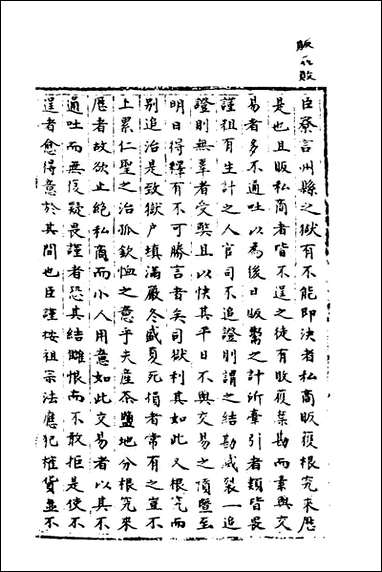 販私敗
臣寮言州縣之獄有不能即決者私商販獲根究来歷
是也且販私商者皆不逞之徒有敗獲菜勘而辜與交
易者多不通吐以為後日販鬻之計所牽引者類皆畏
謹粗有生計之人官司不追證則謂之結勘滅裂一追
證則無辜者受弊且以快其平日不與交易之憤暨至
明日得釋有不可勝言者矣司獄利其如此又根究而
别追治是致獄户填滿嚴冬盛夏死損者常有之豈不
上累仁聖之治孤欽恤之意乎夫産茶鹽地分根究來
歷者故欲止絶私商而小人用意如此交易者以其不
通吐而無復疑畏謹者恐其結讎恨而不敢拒是使不
逞者愈得意於其間也臣謹按祖宗法應犯榷貨並不